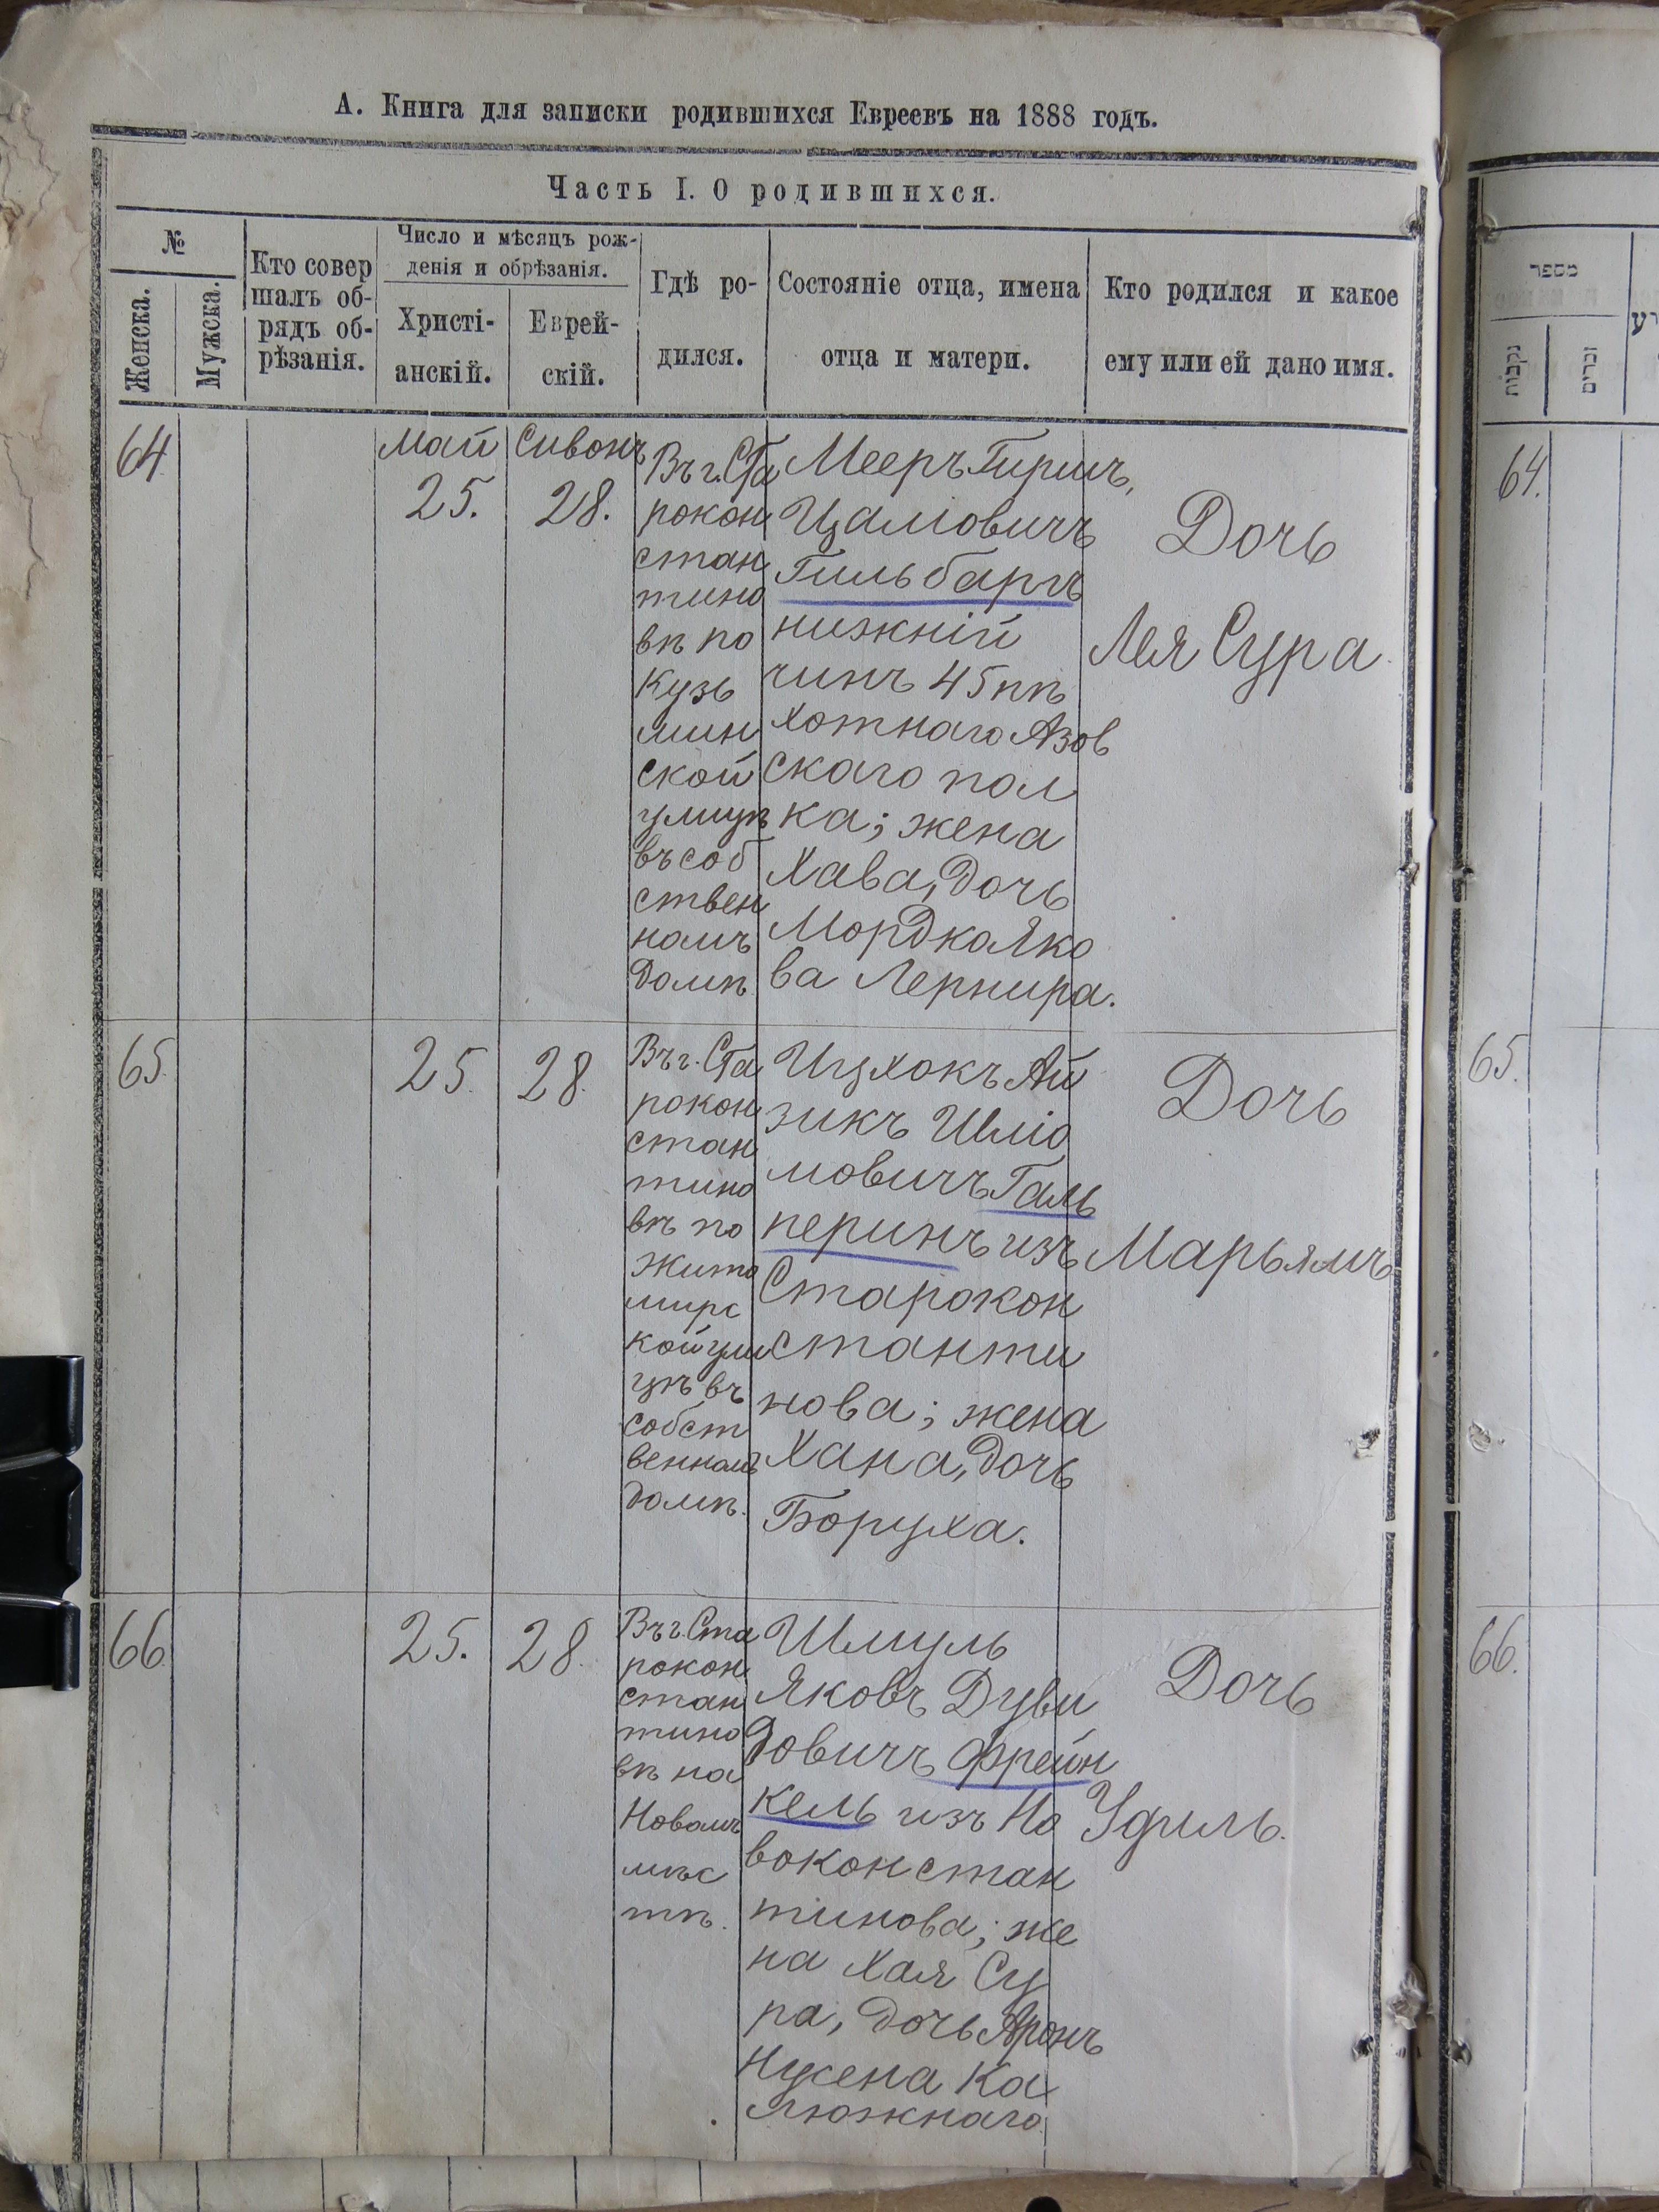 А. Книга для записки родившихся Евреевъ на 1888 годъ.
Часть I. О родившихся.
№
Женска.
Мужска.
Кто совер
шалъ об-
рядъ об-
рѣзанія.
Число и мѣсяцъ рож-
денія и обрѣзанія.
Христі-
анскій.
Еврей-
скій.
Гдѣ ро-
дился.
Состояніе отца, имена
отца и матери.
Кто родился и какое
ему или ей дано имя.
64
Май
25.
Сивонъ
28.
Въ г. Ста
рокон
стан
тино
вѣ по
Кузь
мин
ской
улицѣ
въ соб
ствен
номъ
домѣ
Мееръ Гиршъ,
Цаліовичъ
Гильбаргъ
нижній
чинъ 45 пѣ
хотнаго Азов
скаго пол
ка; жена
Хава, дочь
Мордка Яко
ва Лернира.
Дочь
Лея Сура
65
25
28.
Въ г. Ста
рокон
стан
тино
вѣ по
Жито
мирс
кой ули
цѣ въ
собст
венномъ
домѣ.
Ицхокъ Ай
зикъ Шліо
мовичъ Галь
перинъ изъ
Старокон
станти
нова; жена
Хана, дочь
Боруха.
Дочь
Марьямъ
66
25.
28.
Въ г. Ста
рокон
стан
тино
вѣ на
Новомъ
мѣс
тѣ.
Шмуль
Яковъ Дуви
довичъ Фрейн
кель изъ Но
воконстан
тинова; же
на Хая Су
ра, дочь Аронъ
Нусена Ка
люжнаго
Дочь
Удиль.
מספר
נקבות
זכרים
64.
65.
66.